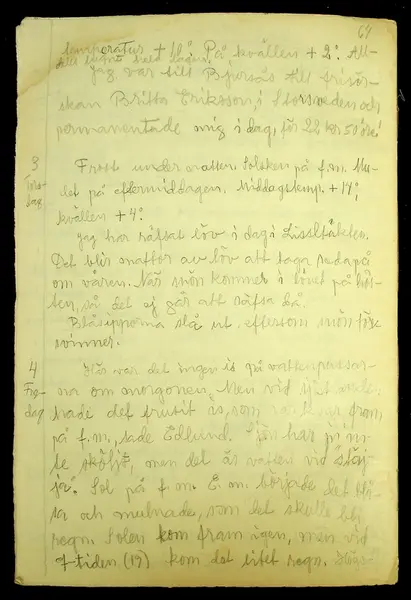 64
temperatur + 11°. På kvällen + 2°. All-
Jag var till Bjursås till frisör-
skan Britta Eriksson i Storsveden och
permanentade mig i dag, för 22 kr 50 öre!
3 Frost under natten. Solsken på f.m. Mu-
Tors- let på eftermiddagen. Middagstemp. + 14°,
dag kvällen + 4°.
Jag har räfsat löv i dag i Lisslfäkten.
Det blir mattor av löv att taga reda på
om våren. När snön kommer i lövet på hös-
ten, så det ej går att räfsa då.
Blåsipporna slå ut eftersom snön för-
svinner.
4 Här var det ingen is på vattenpussar-
Fre- na om morgonen. Men vid
dag hade det frusit is, som fram
på f.m., sade Edlund. Sjön har ju in-
te sköljt, men det är vatten vid
Sol på f.m. E.m. började det blå-
sa och mulnade, som det skulle bli
regn. Solen kom fram igen, men vid
7-tiden (19) kom det litet regn. Högs-